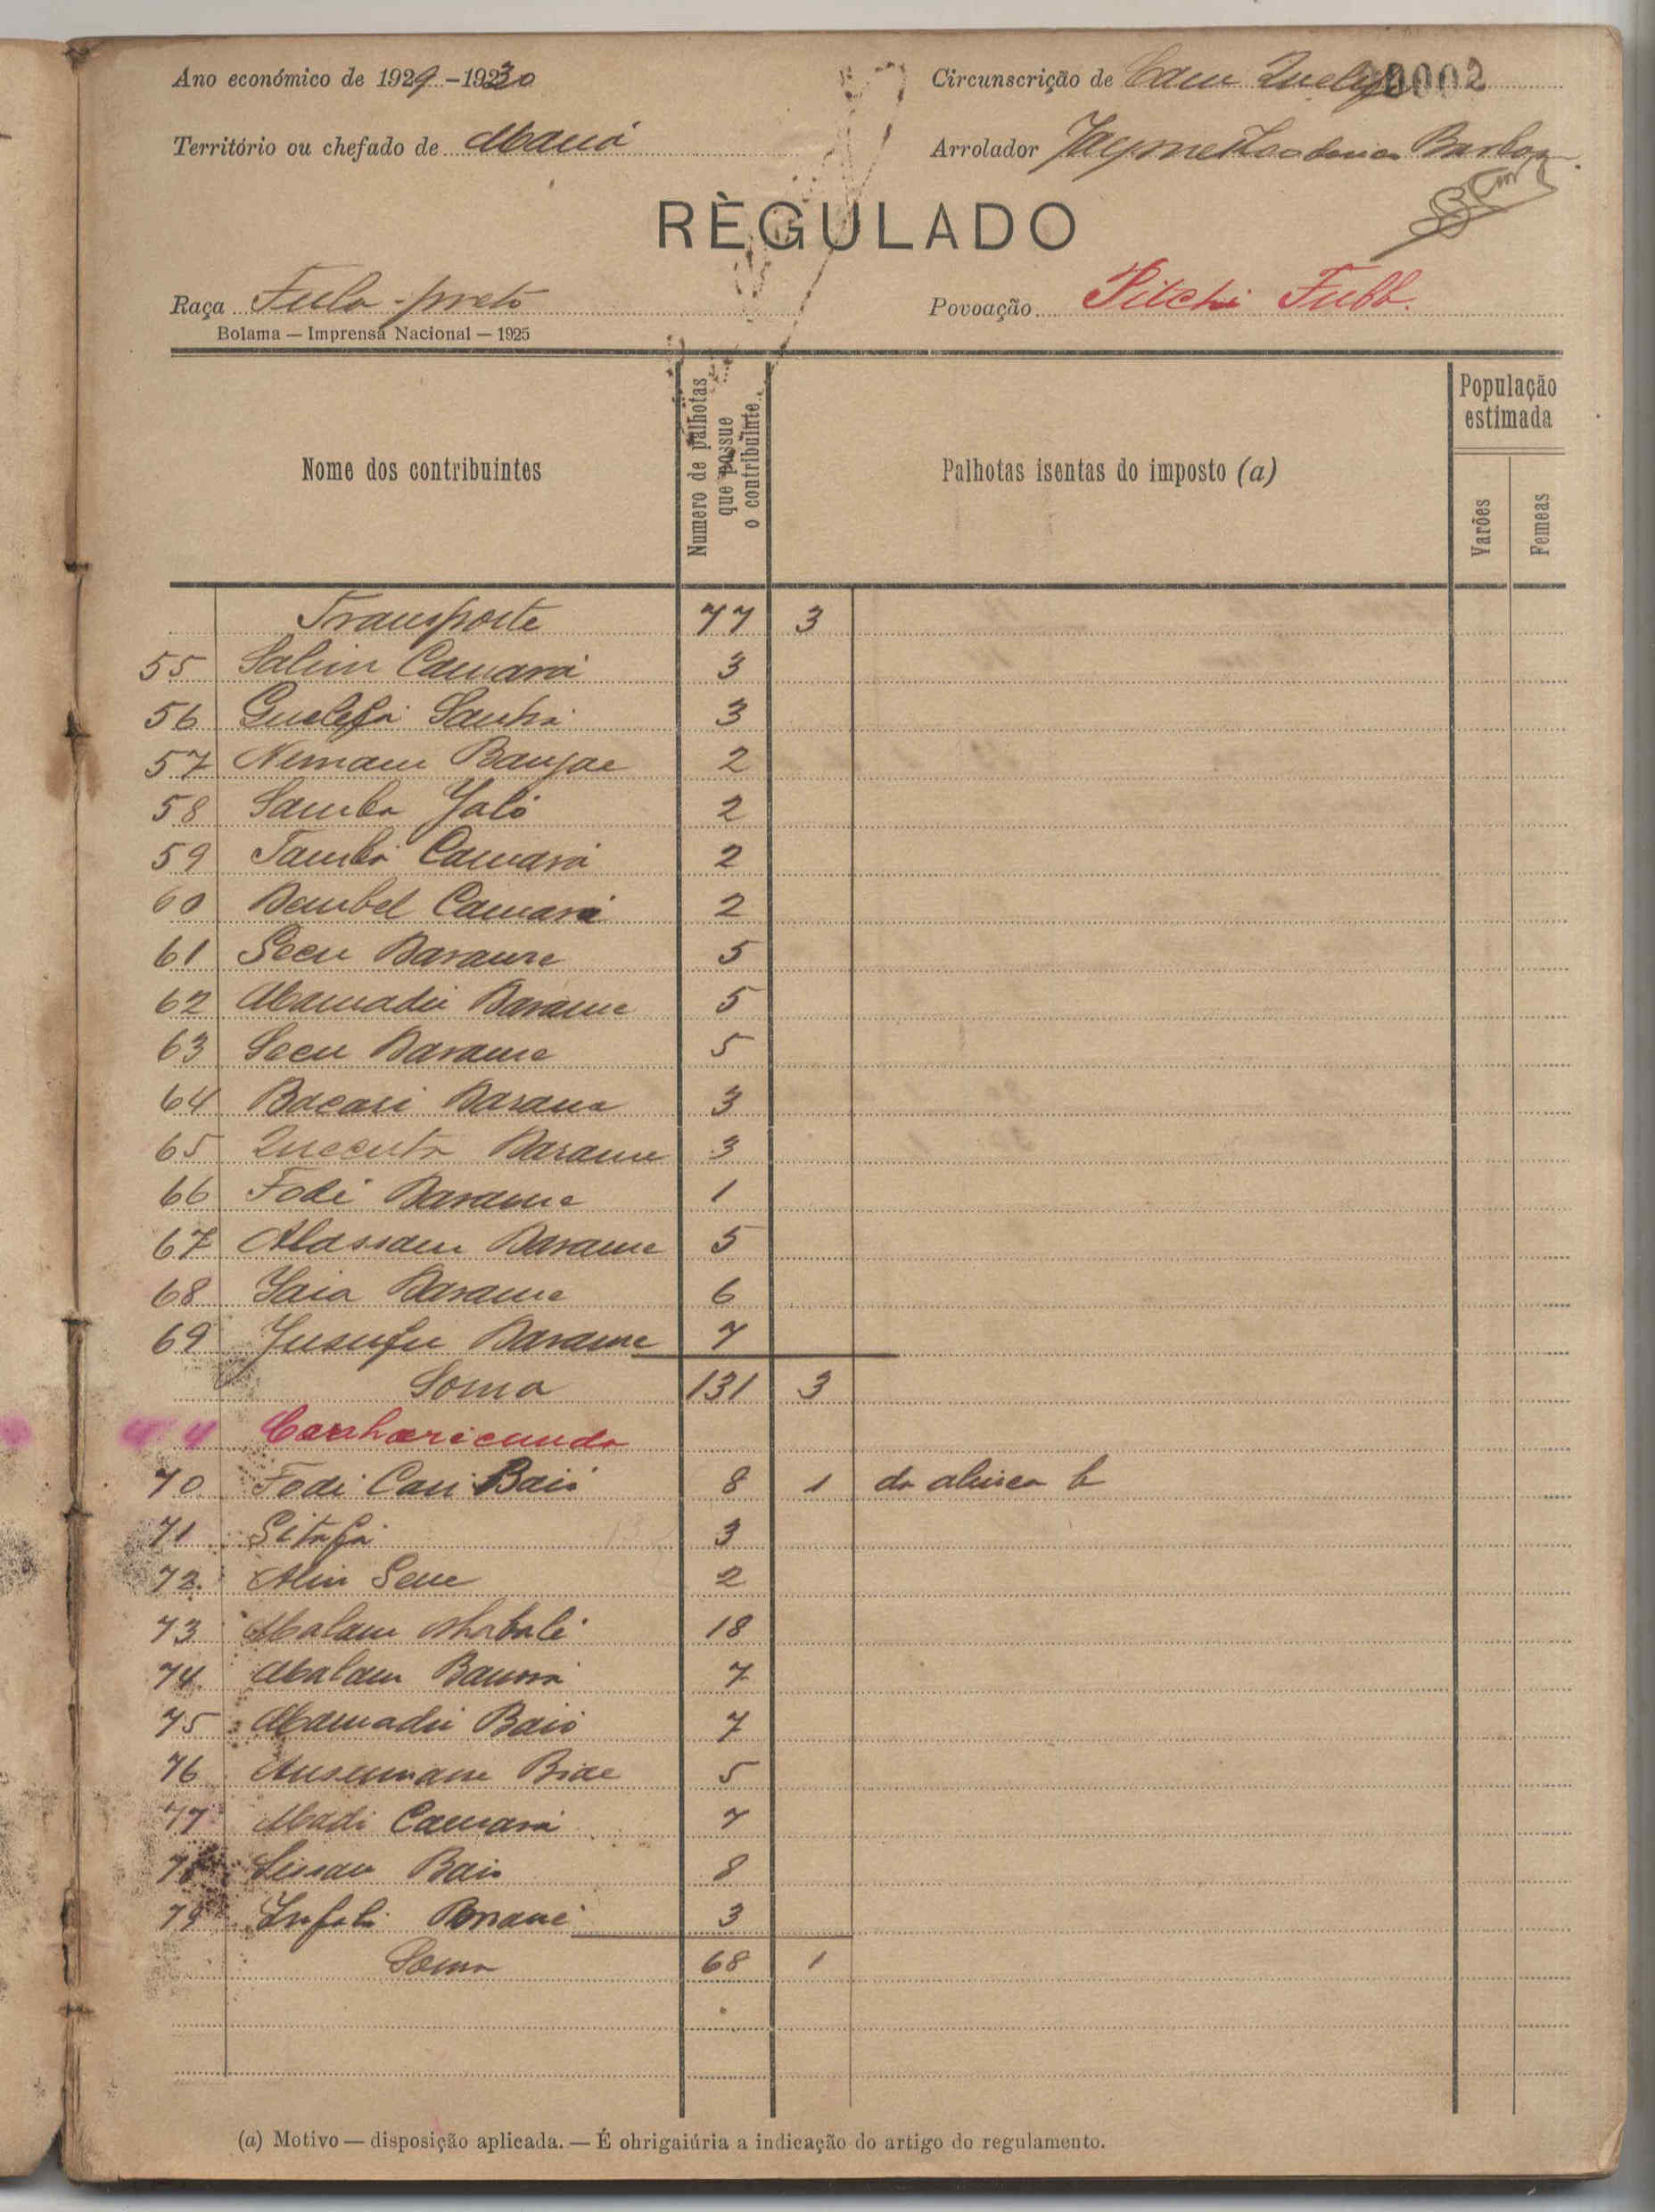 Ano económico de 1929-1930
Circunscrição de Cam Quelifá 0002
Território ou chefado de Maná
Arrolador Jayme Barbosa
RÈGULADO
Raça Fula-preto
Povoação Pitche Fubb.
Bolama — Imprensa Nacional — 1925
Nome dos contribuintes
Numero de palhotas que possue o contribuinte
Palhotas isentas do imposto (a)
População estimada
Varões
Femeas
Transporte 77 3
55 Salim Camará 3
56 Guelefá Sanhá 3
57 Nemam Banjae 2
58 Samba Jaló 2
59 Tambá Camará 2
60 Dambel Camará 2
61 Secu Darame 5
62 Mamadú Darame 5
63 Secu Darame 5
64 Bacari Darame 3
65 Quecuta Darame 3
66 Fodi Darame 1
67 Alassam Darame 5
68 Iaia Darame 6
69 Jusufu Darame 7
Soma 131 3
4 Canharicunda
70 Fodi Cau Baió 8 1 da alinea b
71 Sitafá 3
72 Alin Sene 2
73 Malam 18
74 Malam 7
75 Mamadú Baió 7
76 Ansumane Biae 5
77 Madi Camará 7
78 Baio 8
79 Infali 3
Soma 68 1
(a) Motivo — disposição aplicada. — É ohrigaiúria a indicação do artigo do regulamento.